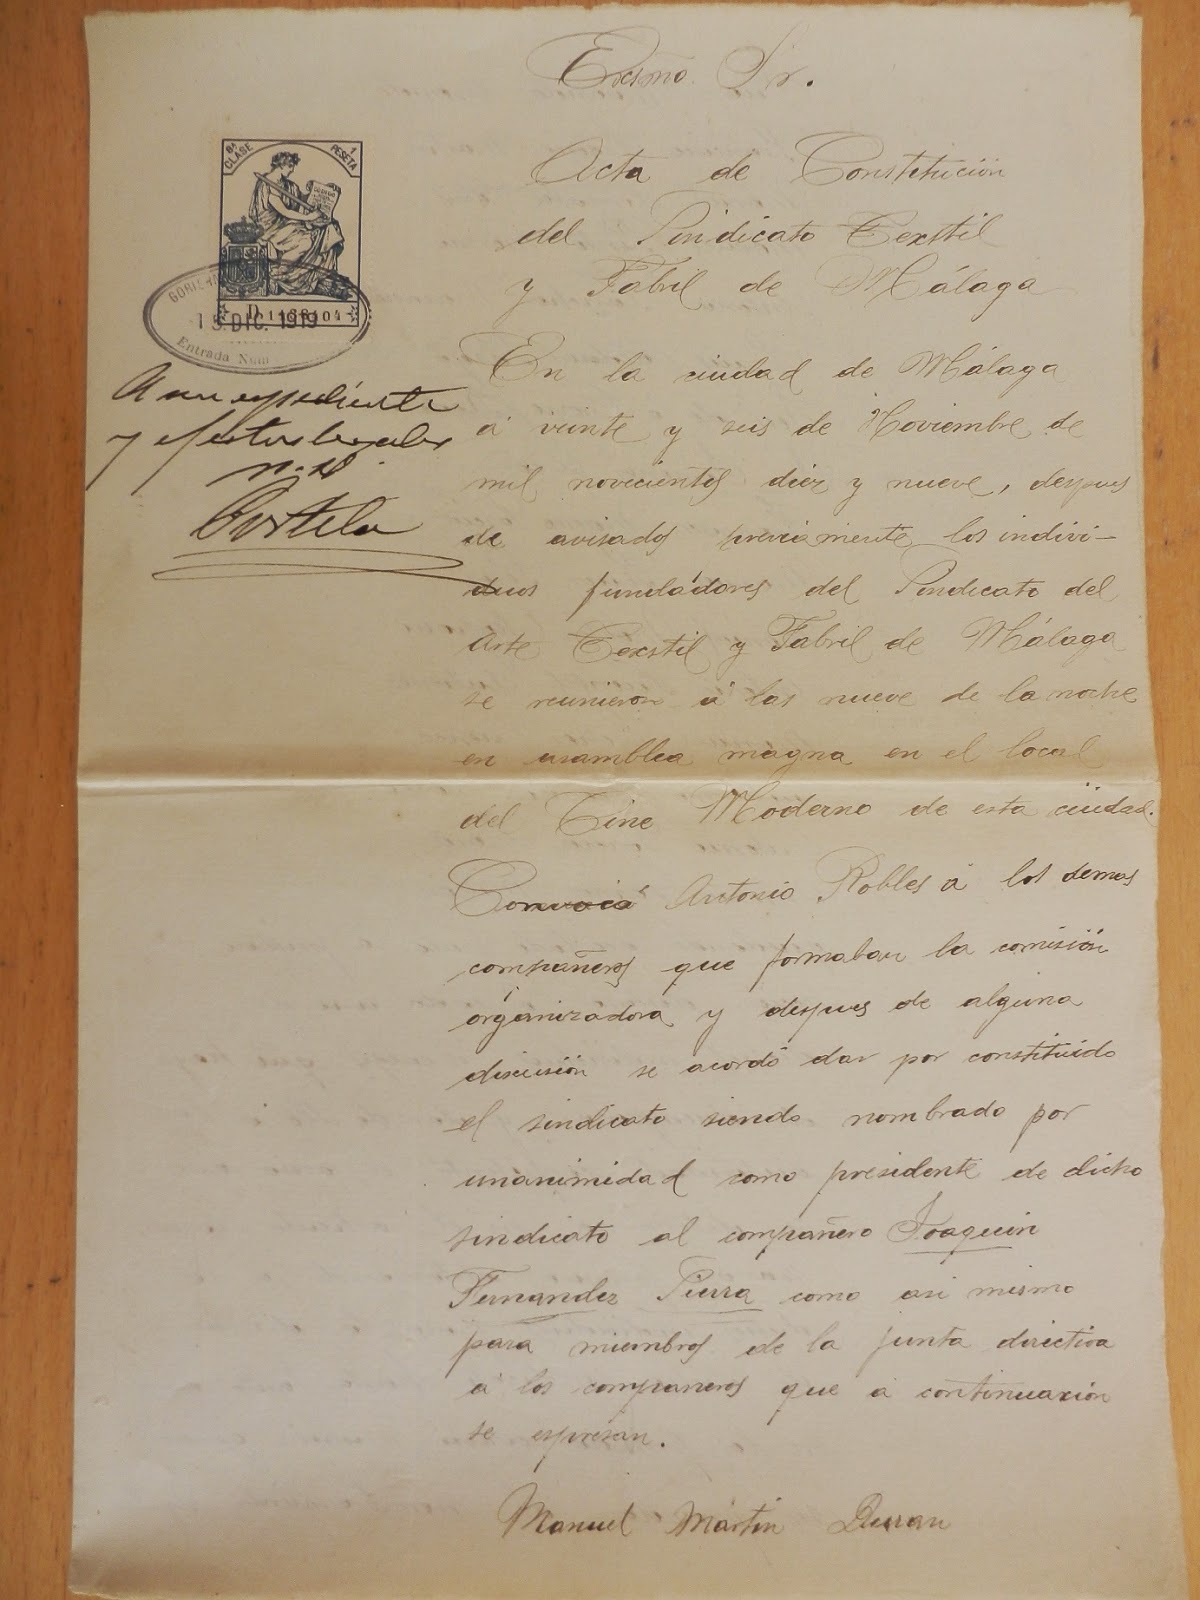 Excmo. Sr.
8ª CLASE
1 PESETA
15. DIC. 1919
Entrada Núm
A su expediente
y efectos legales
Portela
Acta de Constitución
del Sindicato Texstil
y Fabril de Málaga
En la ciudad de Málaga
á veinte y seis de Noviembre de
mil novecientos diez y nueve, despues
de avisados previamente los indivi-
duos fundadores del Sindicato del
Arte Texstil y Fabril de Málaga
se reunieron á las nueve de la noche
en asamblea magna en el local
del Cine Moderno de esta ciudad.
Convocó Antonio Robles á los demas
compañeros que formaban la comisión
organizadora y despues de alguna
discusión se acordó dar por constituido
el sindicato siendo nombrado por
unanimidad como presidente de dicho
sindicato al compañero Joaquin
Fernandez Pierra como asi mismo
para miembros de la junta directiva
á los compañeros que á continuación
se espresan.
Manuel Martin Duran